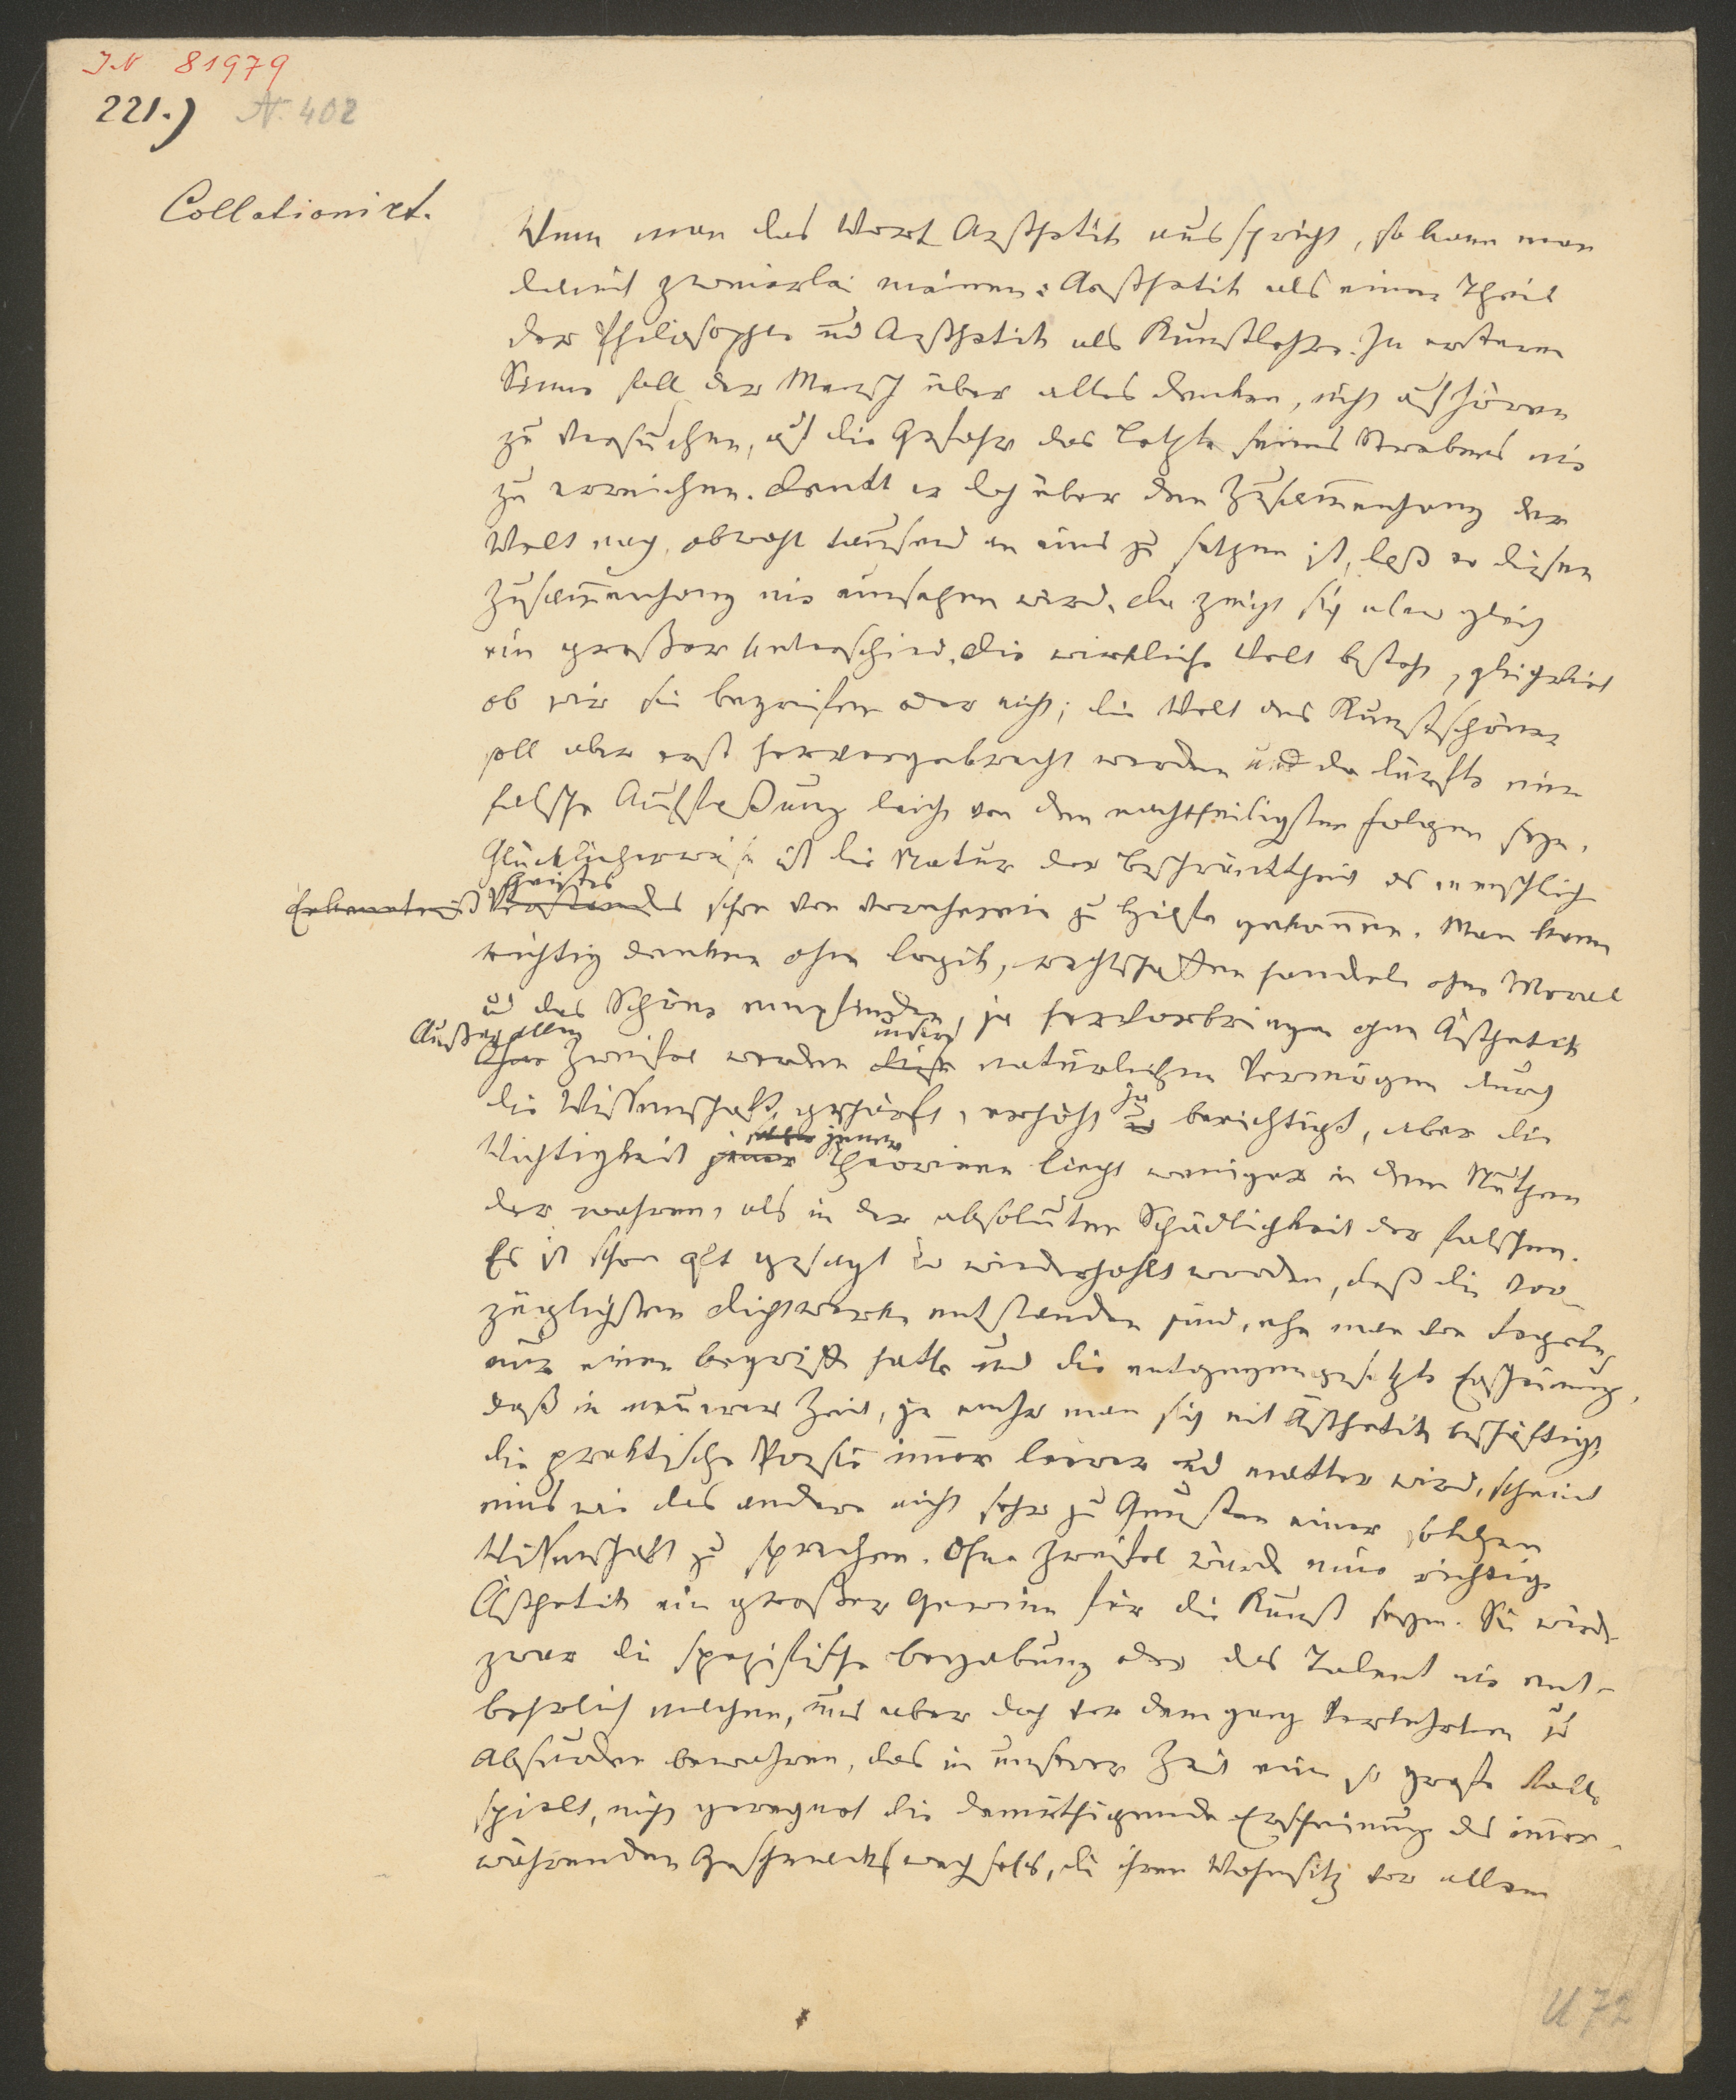 J.N 81979
221.) N. 402
Collationirt.
Wenn man das Wort Aesthetik ausspricht, so kann man
damit zweierlei meinen: Aesthetik als einen Theil
der Philosophie und Aesthetik als Kunstlehre. In ersterem
Sinne soll der Mensch über alles denken, nicht aufhören
zu versuchen, auf die Gefahr das Letzte seines Strebens nie
zu erreichen. Denkt er doch über den Zusammenhang der
Welt nach, obwohl tausend an eins zu setzen ist, daß er diesen
Zusammenhang nie einsehen wird. Da zeigt sich aber gleich
ein großer Unterschied. Die wirkliche Welt besteht, gleichviel
ob wir sie begreifen oder nicht; die Welt des Kunstschönen
soll aber erst hervorgebracht werden und da dürfte eine
falsche Auffaßung leicht von den nachtheiligsten Folgen seyn.
Glücklicherweise ist die Natur der Beschränktheit des menschlich
Geistes
Erkenntniß Verstandes schon von vorneherein zu Hilfe gekommen. Man kann
richtig denken ohne Logik, rechtschaffen handeln ohne Moral
und das Schöne empfinden, ja hervorbringen ohne Ästhetik
Außer allem unsere
Ohne Zweifel werden diese natürlichen Vermögen durch
die Wissenschaft geschärft, erhöht ja berichtigt, aber die
jener
Wichtigkeit jener Theorieen liegt weniger in dem Nutzen
der wahren, als in der absoluten Schädlichkeit der falschen.
Es ist schon oft gesagt und wiederhohlt worden, daß die vor-
züglichsten Dichtwerke entstanden sind, ehe man von Regeln
nur einen Begriff hatte und die entgegengesetzte Erscheinung,
daß in neuerer Zeit, je mehr man sich mit Ästhetik beschäftigt,
die praktische Poesie immer leerer und matter wird, scheint
eins wie das andere nicht sehr zu Gunsten einer solchen
Wissenschaft zu sprechen. Ohne Zweifel würde eine richtige
Ästhetik ein großer Gewinn für die Kunst seyn. Sie würde
zwar die spezifische Begabung oder das Talent nie ent-
behrlich machen, uns aber doch vor dem ganz Verkehrten und
Absurden bewahren, das in unserer Zeit eine so große Rolle
spielt, nicht gerechnet die demüthigende Erscheinung des immer-
währenden Geschmackswechsels, die ihren Wohnsitz vor allem
U 72